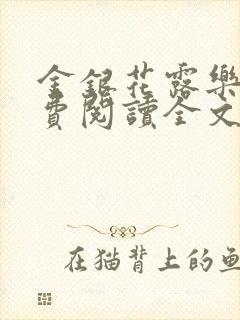 金銀花露樂
費閱讀全文
在猫背上的鱼